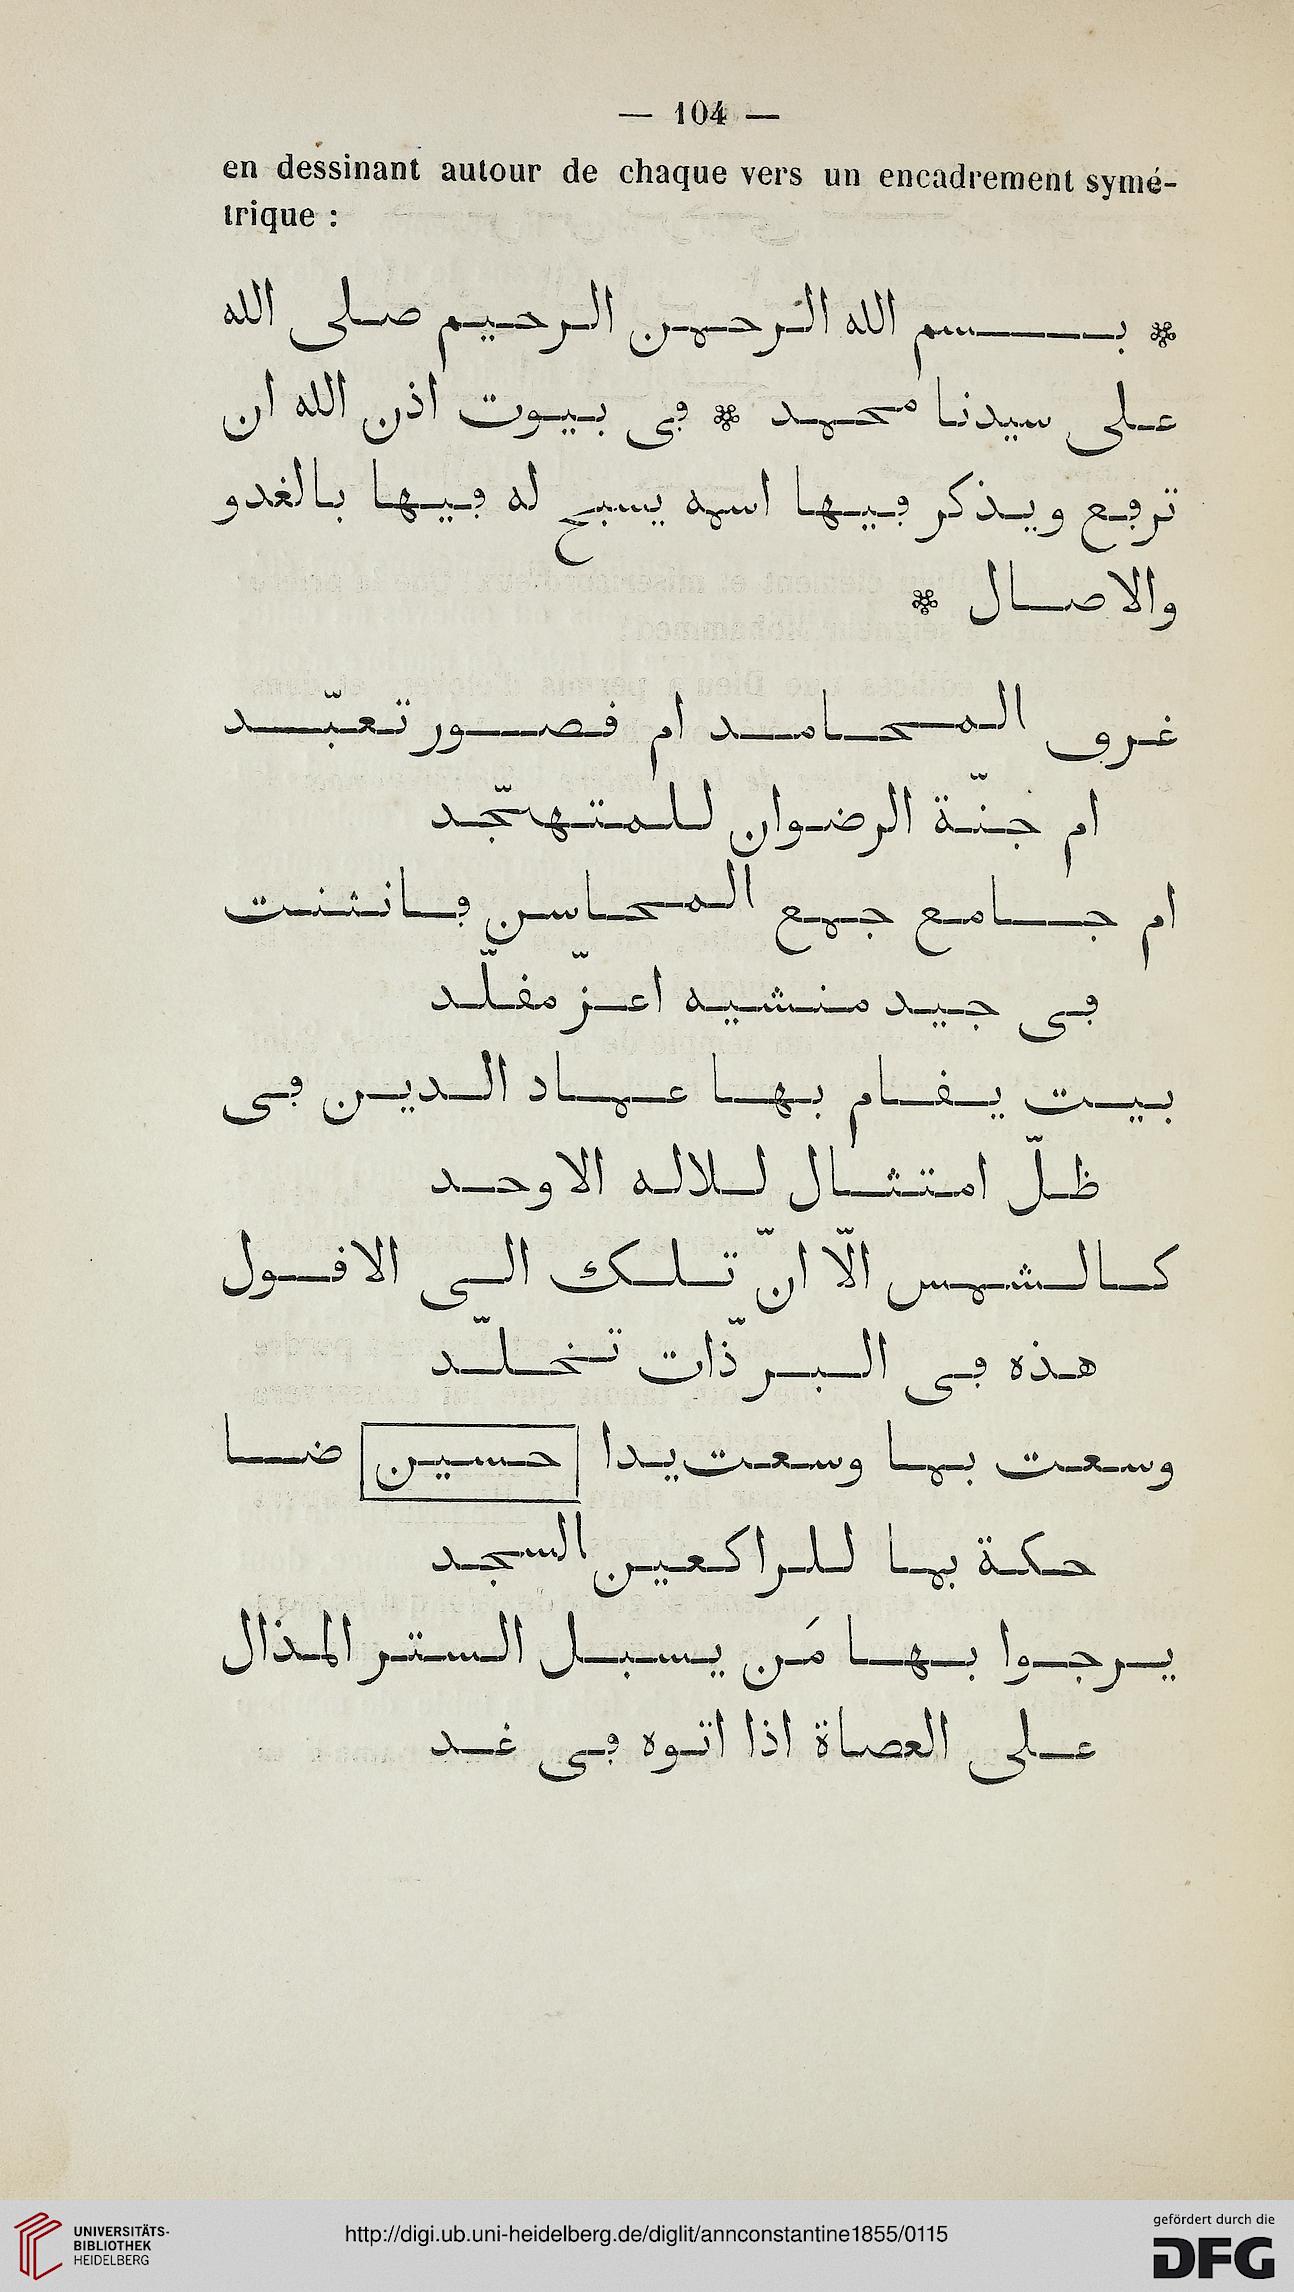 — 104 —
en dessinant autour de chaque vers un encadrement symé-
trique :
* بسم الله الرحمن الرحيم صلى الله
على سيدنا محمد * ڢى بيوت اذن الله ان
ترڢع ويذكر ڢيها اسمه يسبح له ڢيها بالغدو
والاصال *
غرڢ المحامد ام فصور تعبّد
ام جنّة الرضوان للمتهجّد
ام جامع جمع المحاسن ڢانثنت
ڢى جيد منشيه اعزّ مفلّد
بيت يفام بها عماد الدين ڢى
ظلّ امتثال للاله الاوحد
كالشمس الّا انّ تلك الى الافول
هذه ڢى البر ذّات تخلّد
وسعت بها وسعت يدا حسين ضا
حكة بها للراكعين السجد
يرجوا بها مَن يسبل الستر المذال
على العصاة اذا اتوه ڢى غد
UNIVERSITÄTS-
BIBLIOTHEK
HEIDELBERG
http://digi.ub.uni-heidelberg.de/diglit/annconstantine1855/0115
gefördert durch die
DFG